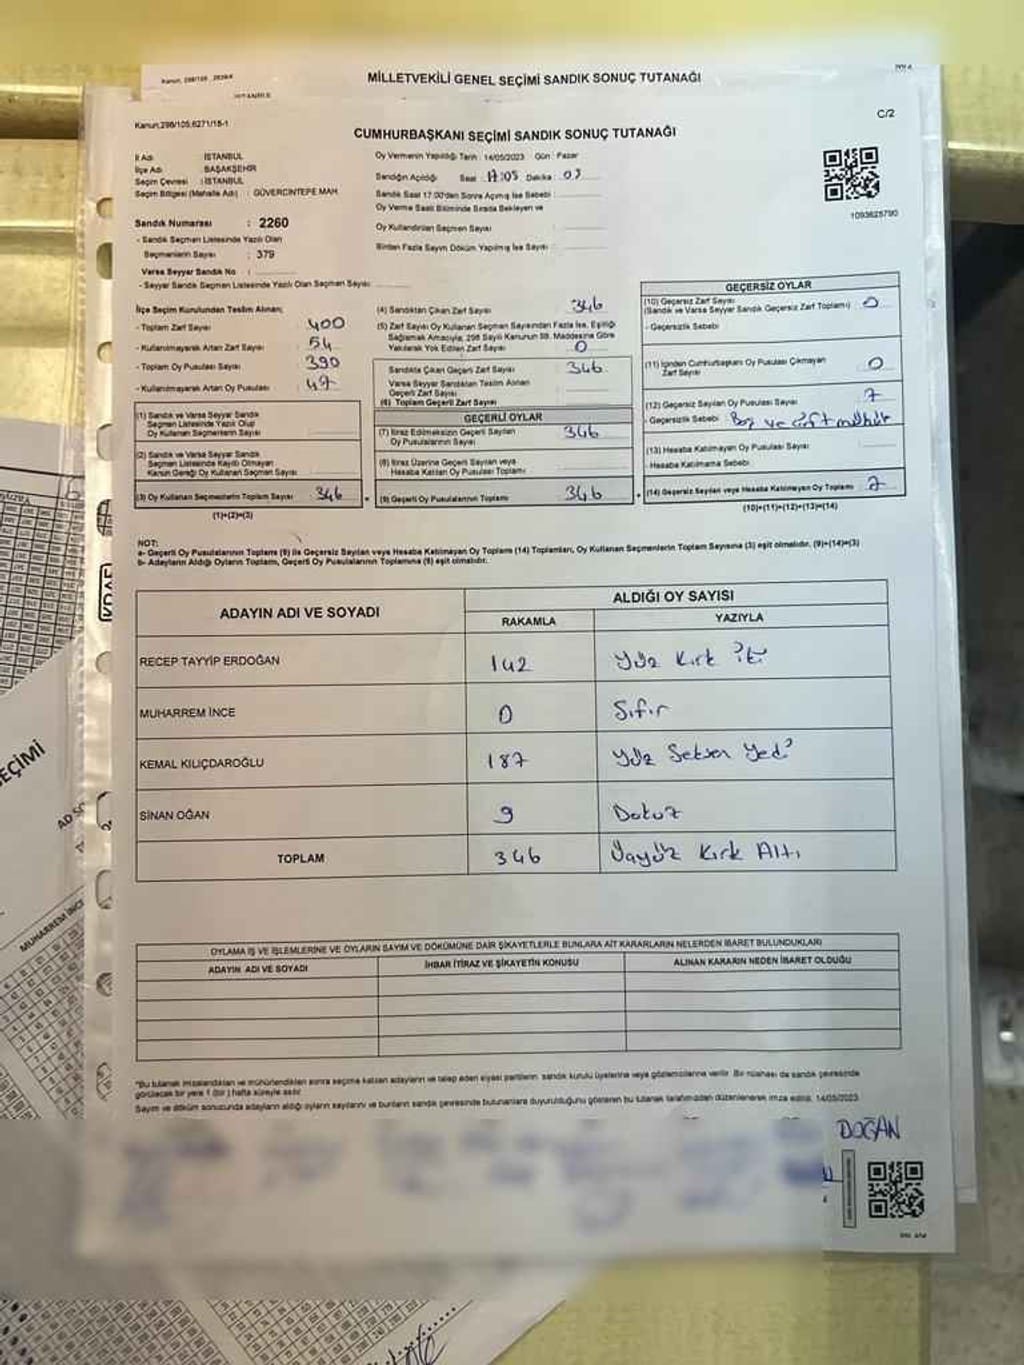 MİLLETVEKİLİ GENEL SEÇİMİ SANDIK SONUÇ TUTANAĞI
C/2
Kanun;298/105,6271/18-1
CUMHURBAŞKANI SEÇİMİ SANDIK SONUÇ TUTANAĞI
İl Adı : İSTANBUL
İlçe Adı : BAŞAKŞEHİR
Seçim Çevresi : İSTANBUL
Seçim Bölgesi (Mahalle Adı) : GÜVERCİNTEPE MAH.
Oy Vermenin Yapıldığı Tarih : 14/05/2023 Gün : Pazar
Sandığın Açıldığı Saat : 17:05 Dakika :
Sandık Saat 17.00'den Sonra Açılmış İse Sebebi :
Oy Verme Saati Bitiminde Sırada Bekleyen ve
Oy Kullandırılan Seçmen Sayısı :
Birden Fazla Sayım Döküm Yapılmış İse Sayısı :
1093625790
Sandık Numarası : 2260
- Sandık Seçmen Listesinde Yazılı Olan
Seçmenlerin Sayısı : 379
Varsa Seyyar Sandık No :
- Seyyar Sandık Seçmen Listesinde Yazılı Olan Seçmen Sayısı
İlçe Seçim Kurulundan Teslim Alınan;
- Toplam Zarf Sayısı : 400
- Kullanılmayarak Artan Zarf Sayısı : 54
- Toplam Oy Pusulası Sayısı : 390
- Kullanılmayarak Artan Oy Pusulası : 47
(1) Sandık ve Varsa Seyyar Sandık
Seçmen Listesinde Yazılı Olup
Oy Kullanan Seçmenlerin Sayısı
(2) Sandık ve Varsa Seyyar Sandık
Seçmen Listesinde Kayıtlı Olmayan
Kanun Gereği Oy Kullanan Seçmen Sayısı
(3) Oy Kullanan Seçmenlerin Toplam Sayısı 346
(1)+(2)=(3)
(4) Sandıktan Çıkan Zarf Sayısı : 346
(5) Zarf Sayısı Oy Kullanan Seçmen Sayısından Fazla İse, Eşitliği
Sağlamak Amacıyla; 298 Sayılı Kanunun 98. Maddesine Göre
Yakılarak Yok Edilen Zarf Sayısı : 0
Sandıkta Çıkan Geçerli Zarf Sayısı : 346
Varsa Seyyar Sandıktan Teslim Alınan
Geçerli Zarf Sayısı
(6) Toplam Geçerli Zarf Sayısı
GEÇERLİ OYLAR
(7) İtiraz Edilmeksizin Geçerli Sayılan
Oy Pusulalarının Sayısı : 346
(8) İtiraz Üzerine Geçerli Sayılan veya
Hesaba Katılan Oy Pusulası Toplamı
(9) Geçerli Oy Pusulalarının Toplamı : 346
GEÇERSİZ OYLAR
(10) Geçersiz Zarf Sayısı
(Sandık ve Varsa Seyyar Sandık Geçersiz Zarf Toplamı) : 0
- Geçersizlik Sebebi
(11) İçinden Cumhurbaşkanı Oy Pusulası Çıkmayan
Zarf Sayısı : 0
(12) Geçersiz Sayılan Oy Pusulası Sayısı : 7
- Geçersizlik Sebebi : Boş ve çift mühür
(13) Hesaba Katılmayan Oy Pusulası Sayısı :
- Hesaba Katılmama Sebebi
(14) Geçersiz Sayılan veya Hesaba Katılmayan Oy Toplamı : 7
(10)+(11)+(12)+(13)=(14)
NOT:
a- Geçerli Oy Pusulalarının Toplamı (9) ile Geçersiz Sayılan veya Hesaba Katılmayan Oy Toplamı (14) Toplamları, Oy Kullanan Seçmenlerin Toplam Sayısına (3) eşit olmalıdır. (9)+(14)=(3)
b- Adayların Aldığı Oyların Toplamı, Geçerli Oy Pusulalarının Toplamına (9) eşit olmalıdır.
ADAYIN ADI VE SOYADI ALDIĞI OY SAYISI
RAKAMLA YAZIYLA
RECEP TAYYİP ERDOĞAN 142 Yüz Kırk İki
MUHARREM İNCE 0 Sıfır
KEMAL KILIÇDAROĞLU 187 Yüz Seksen Yedi
SİNAN OĞAN 9 Dokuz
TOPLAM 346 Üçyüz Kırk Altı
OYLAMA İŞ VE İŞLEMLERİNE VE OYLARIN SAYIM VE DÖKÜMÜNE DAİR ŞİKAYETLERLE BUNLARA AİT KARARLARIN NELERDEN İBARET BULUNDUKLARI
ADAYIN ADI VE SOYADI İHBAR İTİRAZ VE ŞİKAYETİN KONUSU ALINAN KARARIN NEDEN İBARET OLDUĞU
"Bu tutanak imzalandıktan ve mühürlendikten sonra seçime katılan adayların ve talep eden siyasi partilerin sandık kurulu üyelerine veya gözlemcilerine verilir. Bir nüshası da sandık çevresinde
görülecek bir yere 1 (bir) hafta süreyle asılır.
Sayım ve döküm sonucunda adayların aldığı oyların sayılarını ve bunların sandık çevresinde bulunanlara duyurulduğunu gösteren bu tutanak tarafımızdan düzenlenerek imza edildi. 14/05/2023
DOĞAN
EÇİMİ
MUHARREM İNCE